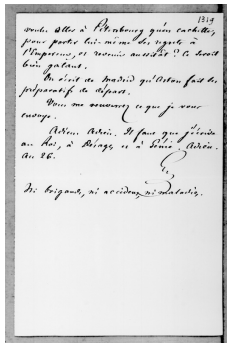 1349
voulu aller à Pétersbourg qu'en cachette,
pour porter lui-même ses regrets à
l'Empereur, et revenir aussitôt? Ce serait
bien galant.
On écrit de Madrid qu'Aston fait les
préparatifs de départ.
Vous me renverrez ce que je vous
envoye.
Adieu. Adieu. Il faut que j'écrive
au Roi, à Désages et à Génie. Adieu.
Au 26.
G.
Ni brigands, ni accidens, ni maladies.